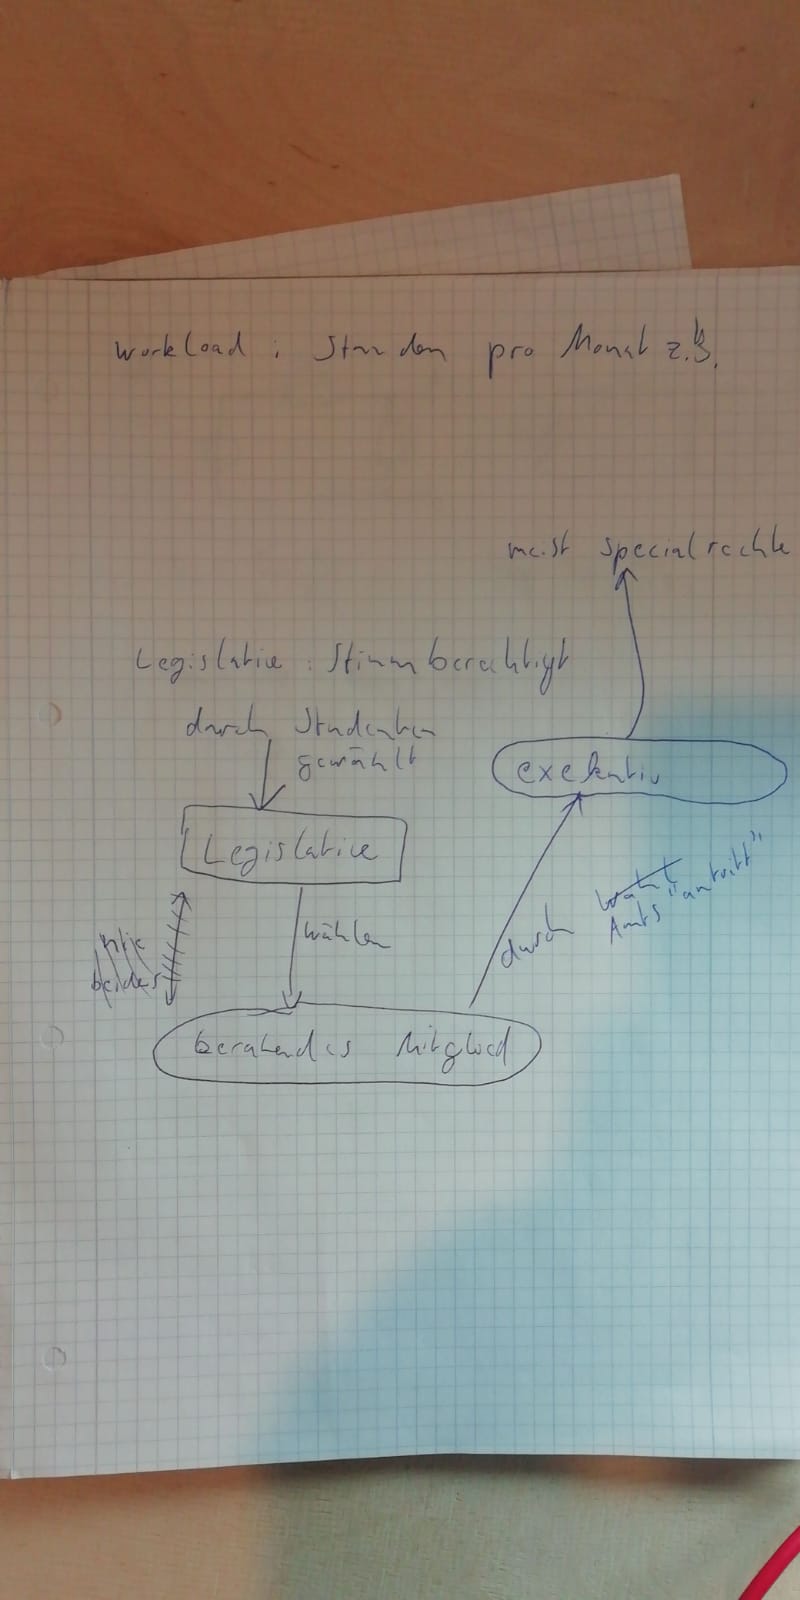 workload : Stunden pro Monat z.B.
meist specialrechte
Legislative : Stimmberechtigt
durch Studenten
gewählt
exekutiv
Legislative
durch Wahl
Amts "antritt"
wählen
nie
beides
beratendes Mitglied